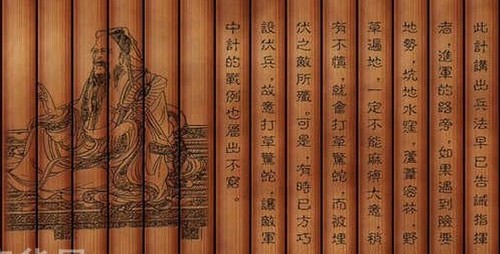 此計講出兵法早已告誡指揮
者，進軍的路旁，如果遇到險要
地勢，坑地水窪，蘆葦密林，野
草遍地，一定不能麻痹大意，稍
有不慎，就會打草驚蛇，而被埋
伏之敵所殲。可是，有時已方巧
設伏兵，故意打草驚蛇，讓敵軍
中計的戰例也層出不窮。